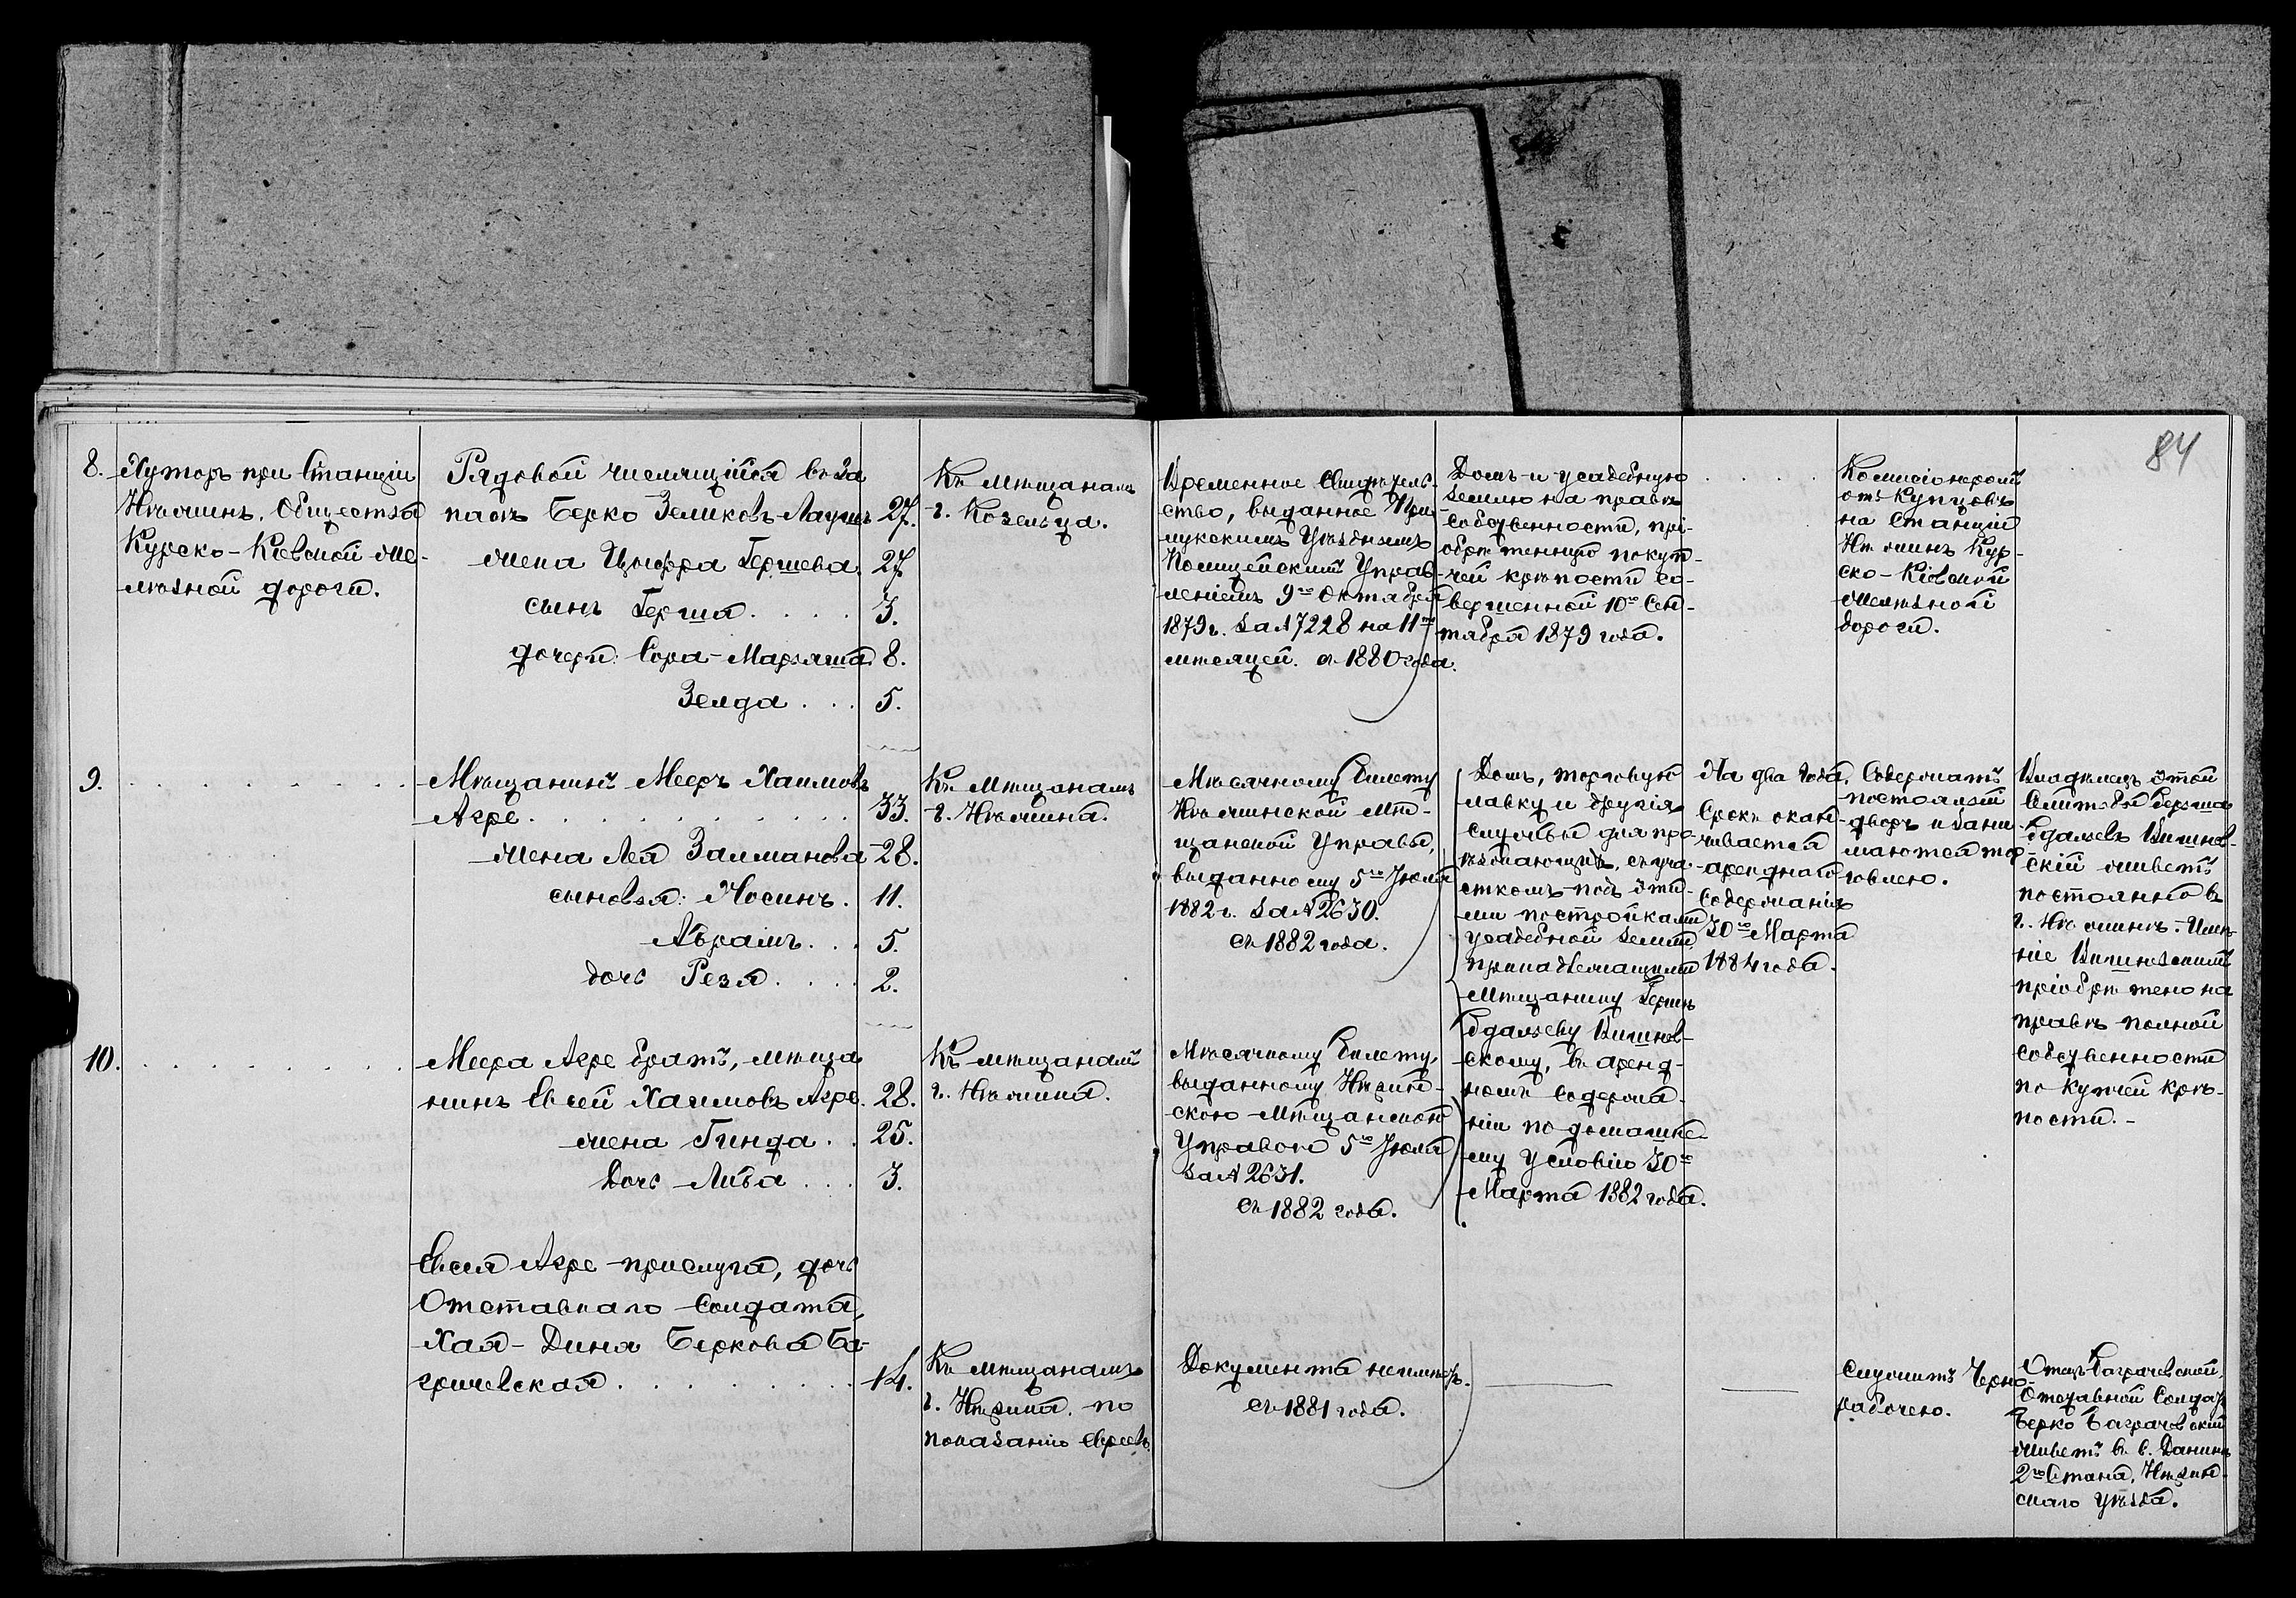 84
8.
Хуторъ при Станціи
Нѣжинъ, Общества
Курско-Кіевской же-
лѣзной дороги.
Рядовой числящійся въ за
пасѣ Берко Зеликовъ 27.
жена Цыфра Гершева. 27.
сынъ Герша . . . . 3.
дочери: Сора-Марьяша 8.
Зелда . . . 5.
Къ мѣщанамъ
г. Козельца.
Временное Свидѣтель-
ство, выданное При-
лукскимъ Уѣзднымъ
Полицейскимъ Управ-
леніемъ 9го Октября
1879 г. за № 7228 на 11ть
мѣсяцей. съ 1880 года.
Домъ и усадебную
землю на правѣ
собственности, прі-
обрѣтенную по куп-
чей крѣпости со-
вершенной 10го Сен-
тября 1879 года.
. . . .
Комисіонеромъ
отъ Купцовъ
на Станціи
Нѣжинъ Кур-
ско-Кіевской
желѣзной
дороги.
9. . . . . . . . . .
Мѣщанинъ Мееръ Хаимовъ
Агре . . . . . . . . . . . 33.
жена Лея Залманова 28.
сыновья: Мосинъ . 11.
Абрамъ . . . 5.
дочь Резя . . . . 2.
Къ мѣщанамъ
г. Нѣжина.
Мѣсячному билету
Нѣжинской Мѣ-
щанской Управы,
выданному 5го Іюля
1882 г. за № 2630.
съ 1882 года.
Домъ, торговую
лавку и другія
службы для про-
ѣзжающихъ, съ уча-
сткомъ подъ эти-
ми постройками
усадебной земли
принадлежащими
мѣщанину Гершѣ
Гдальеву Вишнев-
скому, въ аренд-
номъ содержа-
ніи по домашне-
му условію 30го
Марта 1882 года.
На два года,
Срокъ окан-
чивается
аренднаго
содержанія
30го Марта
1884 года.
Содержатъ
постоялый
дворъ и зани-
маются тор-
говлею.
Владѣлецъ этой
Селитьбы Герша
Гдальевъ Вишнев-
скій живетъ
постоянно въ
г. Нѣжинѣ. Имѣ-
ніе Вишневскимъ
пріобрѣтено на
правѣ полной
собственности
по купчей крѣ-
пости. -
10. . . . . . . . . .
Меера Агре братъ, мѣща
нинъ Евсей Хаимовъ Агре. 28.
жена Гинда . . 25.
дочь Либа . . . 3.
Къ мѣщанамъ
г. Нѣжина.
Мѣсячному билету,
выданному Нѣжин-
скою Мѣщанскою
Управою 5го Іюля
за № 2631.
съ 1882 года.
Евсея Агре прислуга, дочь
Отставнаго Солдата,
Хая-Дина Беркова Ба-
гричевская . . . . . . . . . 14.
Къ мѣщанамъ
г. Нѣжина, по
показанію евреевъ.
Документа не имѣетъ.
съ 1881 года.
Служитъ Черно-
рабочею.
Отецъ Баграчевской,
Отставной Солдатъ
Берко Баграчовскій
живетъ въ с. Данинѣ
2го Стана, Нѣжин-
скаго уѣзда.